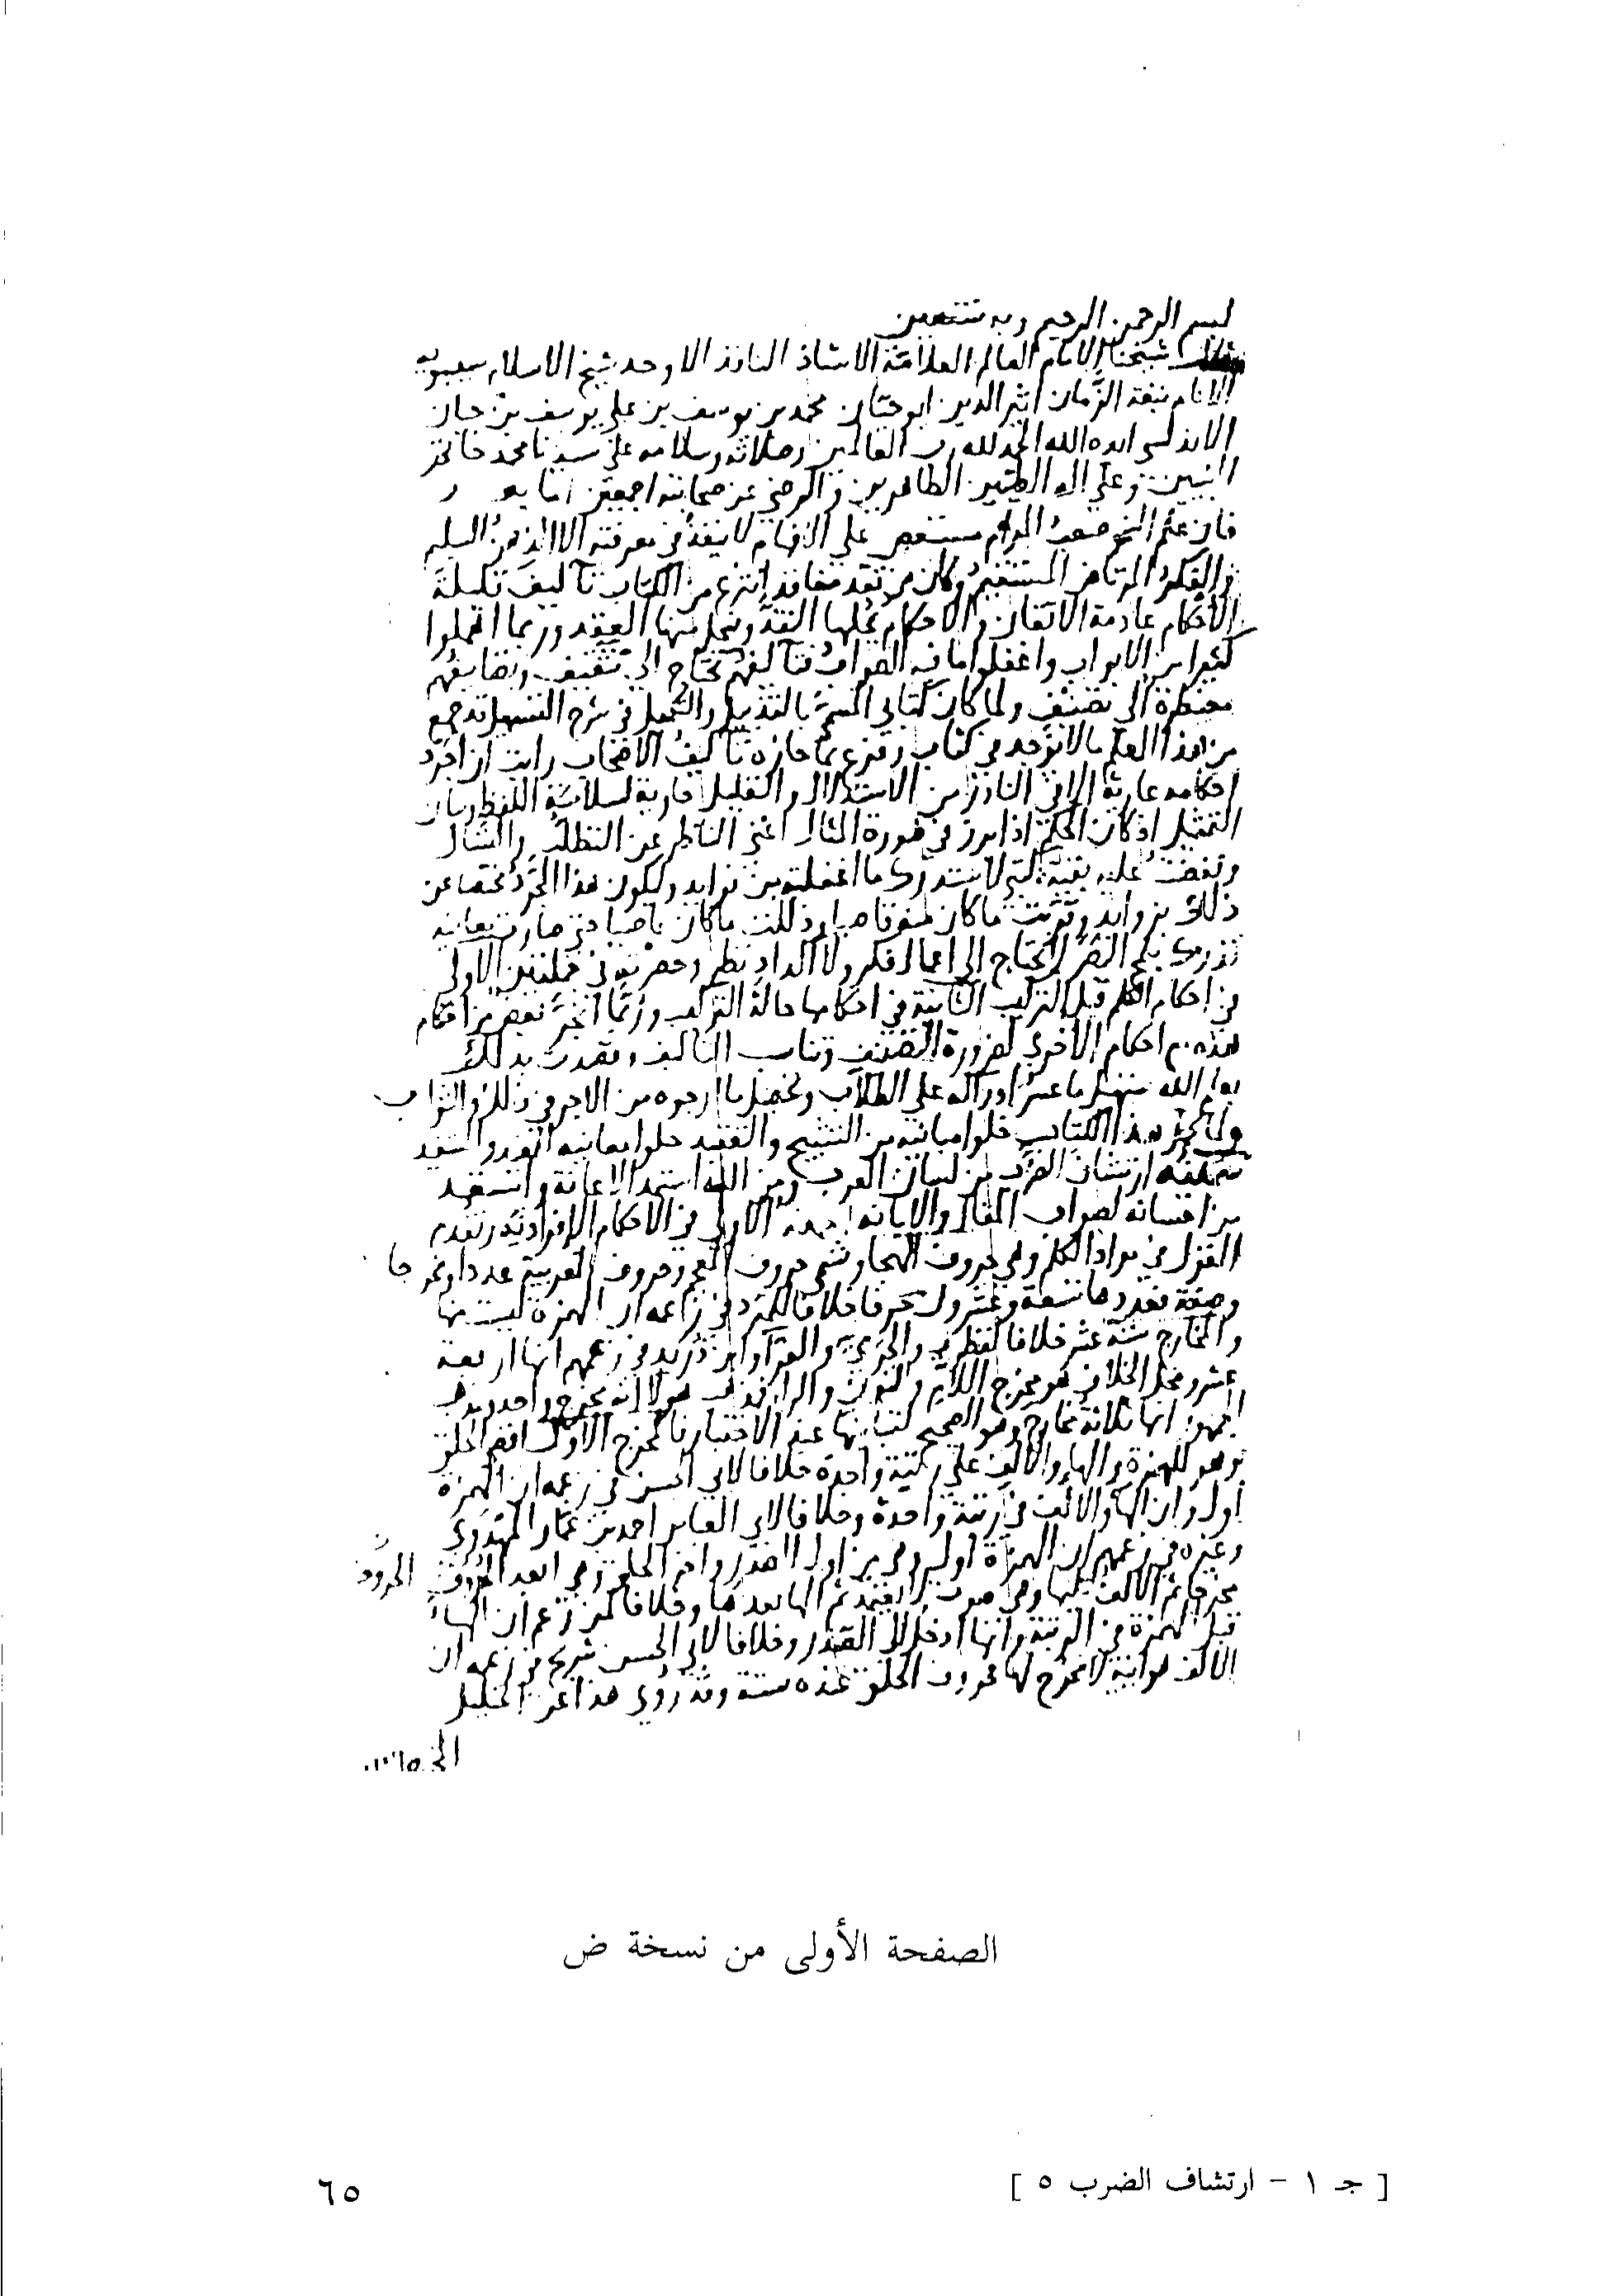 بسم الرحمن الرحيم وبه نستعين
شيخنا الامام العالم العلامة الاستاذ الناقد الاوحد شيخ الاسلام سيبويه
الانام بقية الزمان اثير الدين ابو حيان محمد بن يوسف بن علي بن يوسف بن حيان
الاندلسي ايده الله الحمد لله رب العالمين وصلاته وسلامه على سيدنا محمد خاتم
النبيين وعلى اله الطيبين الطاهرين والرضى عن صحابته اجمعين اما بعد
فان علم النحو صعب المرام مستعص على الافهام لا ينفذ في معرفته الا الذهن السليم
والفكر المرتاض المستقيم وكان من تقدمنا قد انتزع من الكتاب تآليف قليلة
الاحكام عادمة الاتقان والاحكام يحلها النقد وينحل منها العقد وربما اهملوا
كثيرا من الابواب واغفلوا ما فيه الصواب فتآليفهم تحتاج الى تثقيف وتصانيفهم
مضطرة الى تصنيف ولما كان كتابي المسمى بالتذييل والتكميل في شرح التسهيل قد جمع
من هذا العلم ما لا يوجد في كتاب وفرع بما حازه تآليف الاصحاب رايت ان اجرد
احكامه عارية الا في النادر من الاستدلال والتعليل حاوية لسلاسة اللفظ وبيان
التمثيل اذ كان الحكم اذا برز في صورة المثال اغنى الناظر عن التطلب والتسآل
ونفضت عليه بقية كتبي لاستدرك ما اغفلته من فوايده وليكون هذا المجرد مختصا عن
ذلك بزوايده وقربت ما كان منه قاصيا وذللت ما كان عاصيا حتى صارت معانيه
تدرك بلمح البصر لا تحتاج الى اعمال فكر ولا اكداد نظر وحصرته في جملتين الاولى
في احكام الكلم قبل التركيب الثانية في احكامها حالة التركيب وربما انجر بعض من احكام
هذه مع احكام الاخرى لضرورة التصنيف وتناسب التاليف وقصدت بذلك
يعلم الله تسهيل ما عسر ادراكه على الطلاب وتحصيل ما ارجوه من الاجر في ذلك والثواب
ولما كمل هذا الكتاب حلوا مبانيه من التثبيج والتعقيد حلوا معانيه
سميته ارتشاف الضرب من لسان العرب ومن الله استمد الاعانة واستفيد
من احسانه لصواب المقال والابانة الجملة الاولى في الاحكام الافرادية ونقدم
القول في مواد الكلم وهي حروف الهجا وتسمى حروف المعجم وحروف العربية عددا ومخرجا
وصفة فعددها تسعة وعشرون حرفا خلافا للمبرد في زعمه ان الهمزة ليست منها
والمخارج ستة عشر خلافا لقطرب والجرمي والفرا وابن دريد في زعمهم انها اربعة
عشر ومحل الخلاف هو مخرج اللام والنون والرا فمذهب هولا انه مخرج واحد ومذهب
الجمهور انها ثلاثة مخارج وهو الصحيح لتباينها عند الاختبار فالمخرج الاول اقصى الحلق
وهو للهمزة والهاء والالف على رتبة واحدة خلافا لابي الحسن في زعمه ان الهمزة
اول وان الها والالف في رتبة واحدة وخلافا لابي العباس احمد بن عمار المهدوي
وغيره في زعمهم ان الهمزة اول وهي من اول الصدر واخر الحلق وهي ابعد الحروف
مخرجا ثم الالف تليها وهي صوت لا يعتمد ثم الها بعدها وخلافا لمن زعم ان الها
قبل الهمزة في الرتبة وانها ادخل الى الصدر وخلافا لابي الحسن شريح في زعمه ان
الالف هوائية لا مخرج لها فحروف الحلق عنده ستة وقد روى هذا عن الخليل
الصفحة الأولى من نسخة ض
[ جـ ١ - ارتشاف الضرب ٥ ]
٦٥